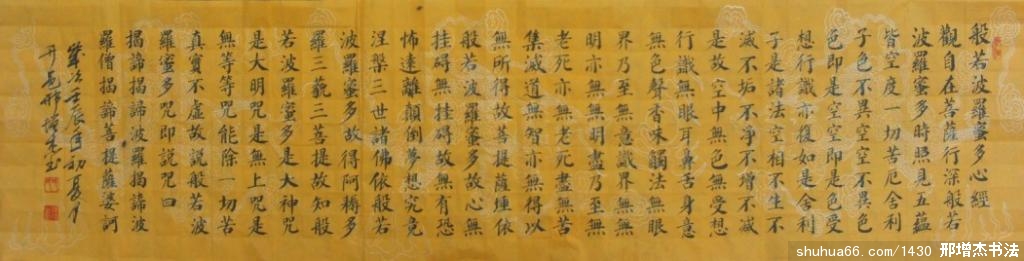 般若波羅蜜多心經
觀自在菩薩行深般若
波羅蜜多時照見五蘊
皆空度一切苦厄舍利
子色不異空空不異色
色即是空空即是色受
想行識亦復如是舍利
子是諸法空相不生不
滅不垢不淨不增不減
是故空中無色無受想
行識無眼耳鼻舌身意
無色聲香味觸法無眼
界乃至無意識界無無
明亦無無明盡乃至無
老死亦無老死盡無苦
集滅道無智亦無得以
無所得故菩提薩埵依
般若波羅蜜多故心無
挂碍無挂碍故無有恐
怖遠離顛倒夢想究竟
涅槃三世諸佛依般若
波羅蜜多故得阿耨多
羅三藐三菩提故知般
若波羅蜜多是大神咒
是大明咒是無上咒是
無等等咒能除一切苦
真實不虛故說般若波
羅蜜多咒即說咒曰
揭諦揭諦波羅揭諦波
羅僧揭諦菩提薩婆訶
歲次壬辰初夏
邢增杰
shuhua66.com/1430 邢增杰书法